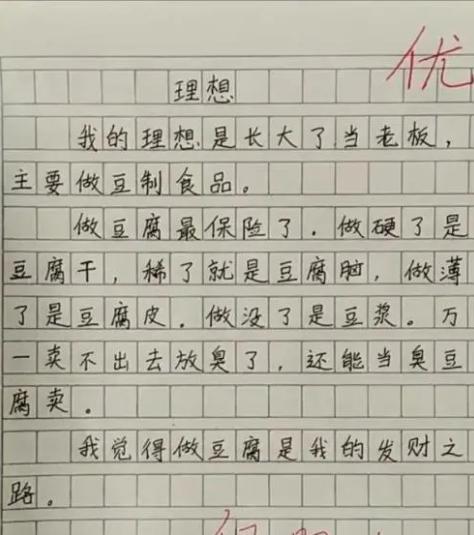 优
理想
我的理想是长大了当老板，
主要做豆制食品。
做豆腐最保险了．做硬了是
豆腐干，稀了就是豆腐脑，做薄
了是豆腐皮．做没了是豆浆。万
一卖不出去放臭了，还能当臭豆
腐卖。
我觉得做豆腐是我的发财之
路。